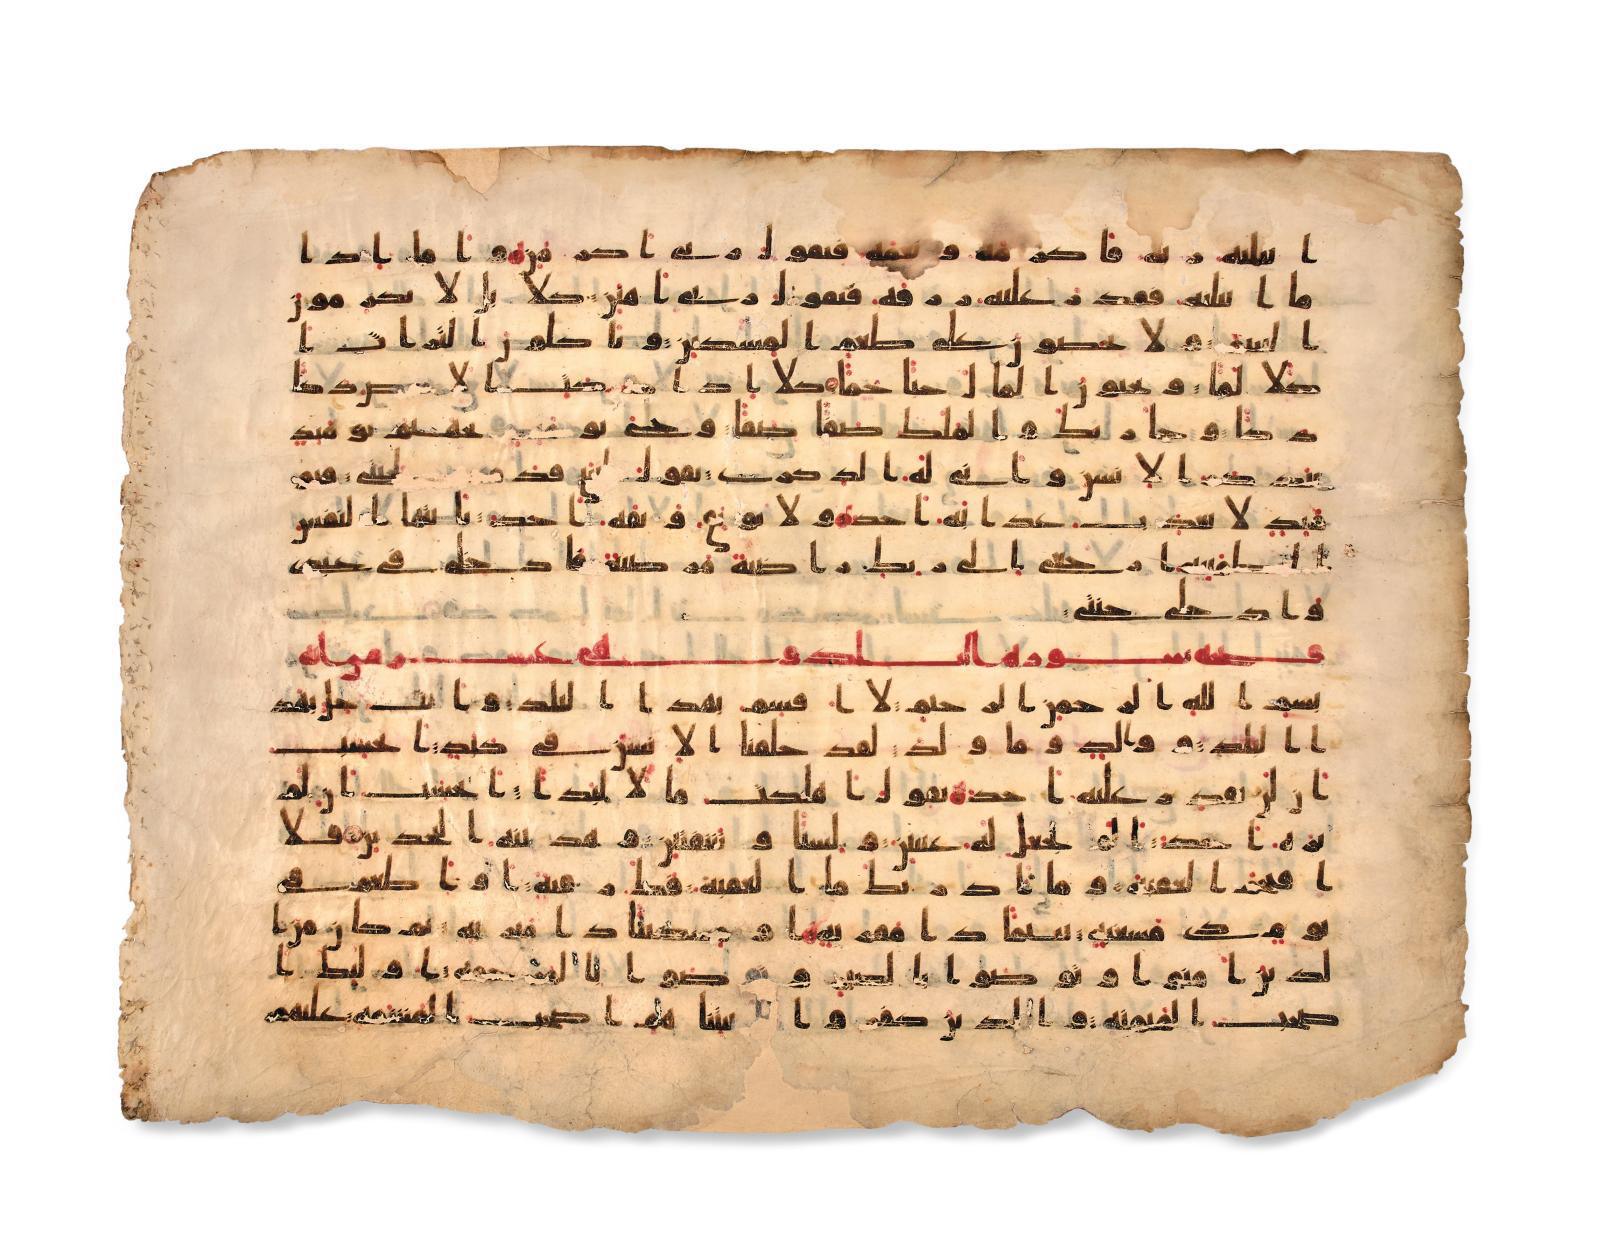 ما ابتليه ربه فاكرمه ونعمه فيقول ربي اكرمن واما اذا
ما ابتليه فقدر عليه رزقه فيقول ربي اهنن كلا بل لا تكرمون
اليتيم ولا تحضون على طعم المسكين وتاكلون التراث ا
كلا لما وتحبون المال حبا جما كلا اذا دكت الارض دكا
دكا وجا ربك والملك صفا صفا وجيء يومئذ بجهنم يومئذ
يتذكر الانسن وانى له الذكرى يقول يليتني قدمت لحيتي فيوم
ئذ لا يعذب عذابه احد ولا يوثق وثقه احد يايتها النفس
المطمئنة ارجعي الى ربك راضية مرضية فادخلي في عبدي
وادخلي جنتي
فاتحة سورة البلد وهي عشرون اية
بسم الله الرحمن الرحيم لا اقسم بهذا البلد وانت حل بهذ
ا البلد ووالد وما ولد لقد خلقنا الانسن في كبد ايحسب
ان لن يقدر عليه احد يقول اهلكت مالا لبدا ايحسب ان لم
يره احد الم نجعل له عينين ولسنا وشفتين وهدينه النجدين فلا
اقتحم العقبة وما ادريك ما العقبة فك رقبة او اطعم في
يوم ذي مسغبة يتيما ذا مقربة او مسكينا ذا متربة ثم كان من ا
لذين امنوا وتوصوا بالصبر وتوصوا بالمرحمة اوليك ا
صحب الميمنة والذين كفروا بايتنا هم اصحب المشمة عليهم